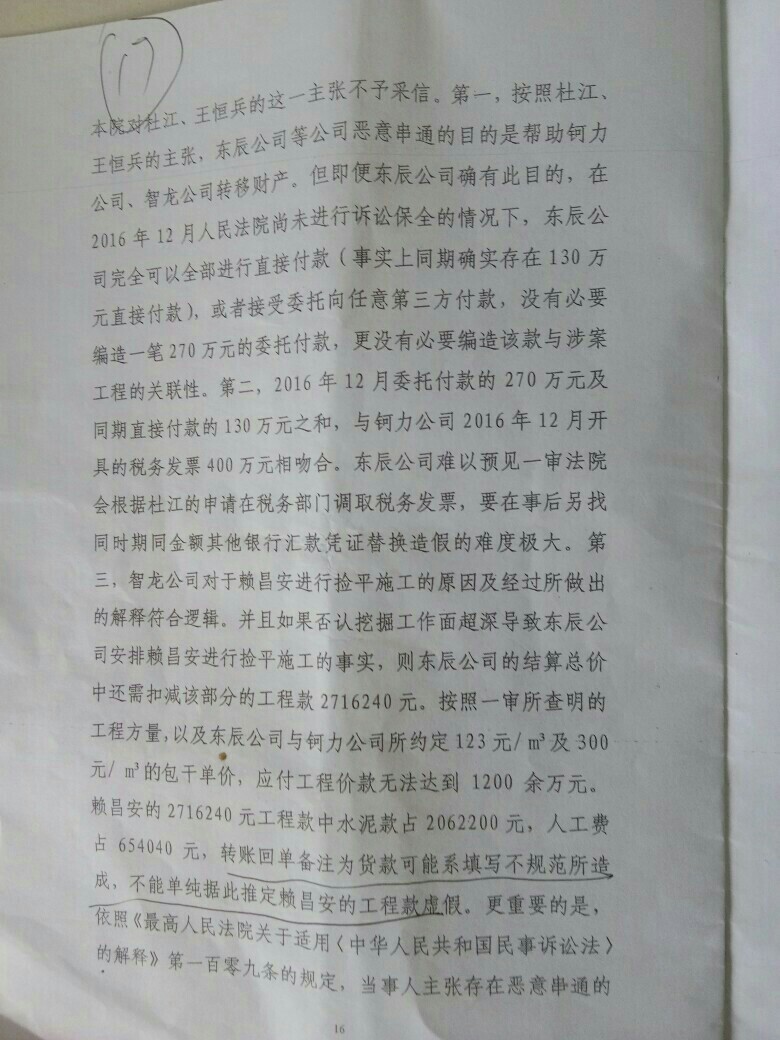 17
本院对杜江、王恒兵的这一主张不予采信。第一，按照杜江、
王恒兵的主张，东辰公司等公司恶意串通的目的是帮助钶力
公司、智龙公司转移财产。但即便东辰公司确有此目的，在
2016 年 12 月人民法院尚未进行诉讼保全的情况下，东辰公
司完全可以全部进行直接付款（事实上同期确实存在 130 万
元直接付款），或者接受委托向任意第三方付款，没有必要
编造一笔 270 万元的委托付款，更没有必要编造该款与涉案
工程的关联性。第二，2016 年 12 月委托付款的 270 万元及
同期直接付款的 130 万元之和，与钶力公司 2016 年 12 月开
具的税务发票 400 万元相吻合。东辰公司难以预见一审法院
会根据杜江的申请在税务部门调取税务发票，要在事后另找
同时期同金额其他银行汇款凭证替换造假的难度极大。第
三，智龙公司对于赖昌安进行捡平施工的原因及经过所做出
的解释符合逻辑。并且如果否认挖掘工作面超深导致东辰公
司安排赖昌安进行捡平施工的事实，则东辰公司的结算总价
中还需扣减该部分的工程款 2716240 元。按照一审所查明的
工程方量，以及东辰公司与钶力公司所约定 123 元/ m³ 及 300
元/ m³ 的包干单价，应付工程价款无法达到 1200 余万元。
赖昌安的 2716240 元工程款中水泥款占 2062200 元，人工费
占 654040 元，转账回单备注为货款可能系填写不规范所造
成，不能单纯据此推定赖昌安的工程款虚假。更重要的是，
依照《最高人民法院关于适用〈中华人民共和国民事诉讼法〉
的解释》第一百零九条的规定，当事人主张存在恶意串通的
16